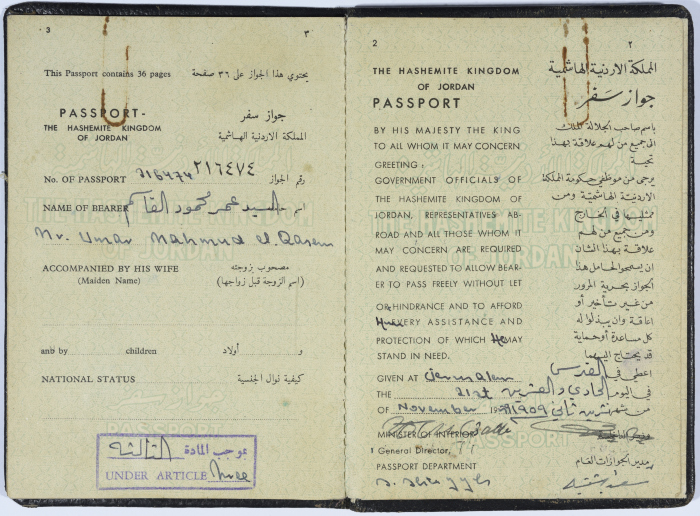 3
٣
This Passport contains 36 pages
يحتوي هذا الجواز على ٣٦ صفحة
PASSPORT-
جواز سفر
THE HASHEMITE KINGDOM
OF JORDAN
المملكة الاردنية الهاشمية
No. OF PASSPORT 216474 ٢١٦٤٧٤ رقم الجواز
NAME OF BEARER السيد عمر محمود القاسم اسم
Mr. Umar Mahmud el. Qasem
ACCOMPANIED BY HIS WIFE
مصحوب بزوجته
(Maiden Name)
(اسم الزوجة قبل زواجها)
and by children
و أولاد
NATIONAL STATUS
كيفية نوال الجنسية
بموجب المادة الثالثة
UNDER ARTICLE three
2
٢
THE HASHEMITE KINGDOM
OF JORDAN
PASSPORT
BY HIS MAJESTY THE KING
TO ALL WHOM IT MAY CONCERN
GREETING:
GOVERNMENT OFFICIALS OF
THE HASHEMITE KINGDOM OF
JORDAN, REPRESENTATIVES AB-
ROAD AND ALL THOSE WHOM IT
MAY CONCERN ARE REQUIRED
AND REQUESTED TO ALLOW BEAR-
ER TO PASS FREELY WITHOUT LET
OR HINDRANCE AND TO AFFORD
EVERY ASSISTANCE AND
PROTECTION OF WHICH HE MAY
STAND IN NEED.
GIVEN AT Jerusalem
THE 21st
OF November
MINISTER OF INTERIOR
1 General Director,
PASSPORT DEPARTMENT
المملكة الاردنية الهاشمية
جواز سفر
باسم صاحب الجلالة الملك
الى جميع من لهم علاقة بهذا
تحية
يرجى من موظفي حكومة المملكة
الاردنية الهاشمية ومن
ممثليها في الخارج
ومن جميع من لهم
علاقة بهذا الشأن
ان يسمحوا لحامل هذا
الجواز بحرية المرور
من غير تأخير أو
اعاقة وان يبذلوا له
كل مساعدة أو حماية
قد يحتاج اليهما
اعطي في القدس
في اليوم الحادي والعشرين
من شهر تشرين ثاني
مدير الجوازات العام